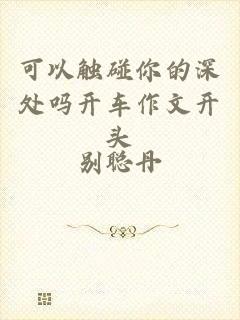 可以触碰你的深
处吗开车作文开
头
别聪丹